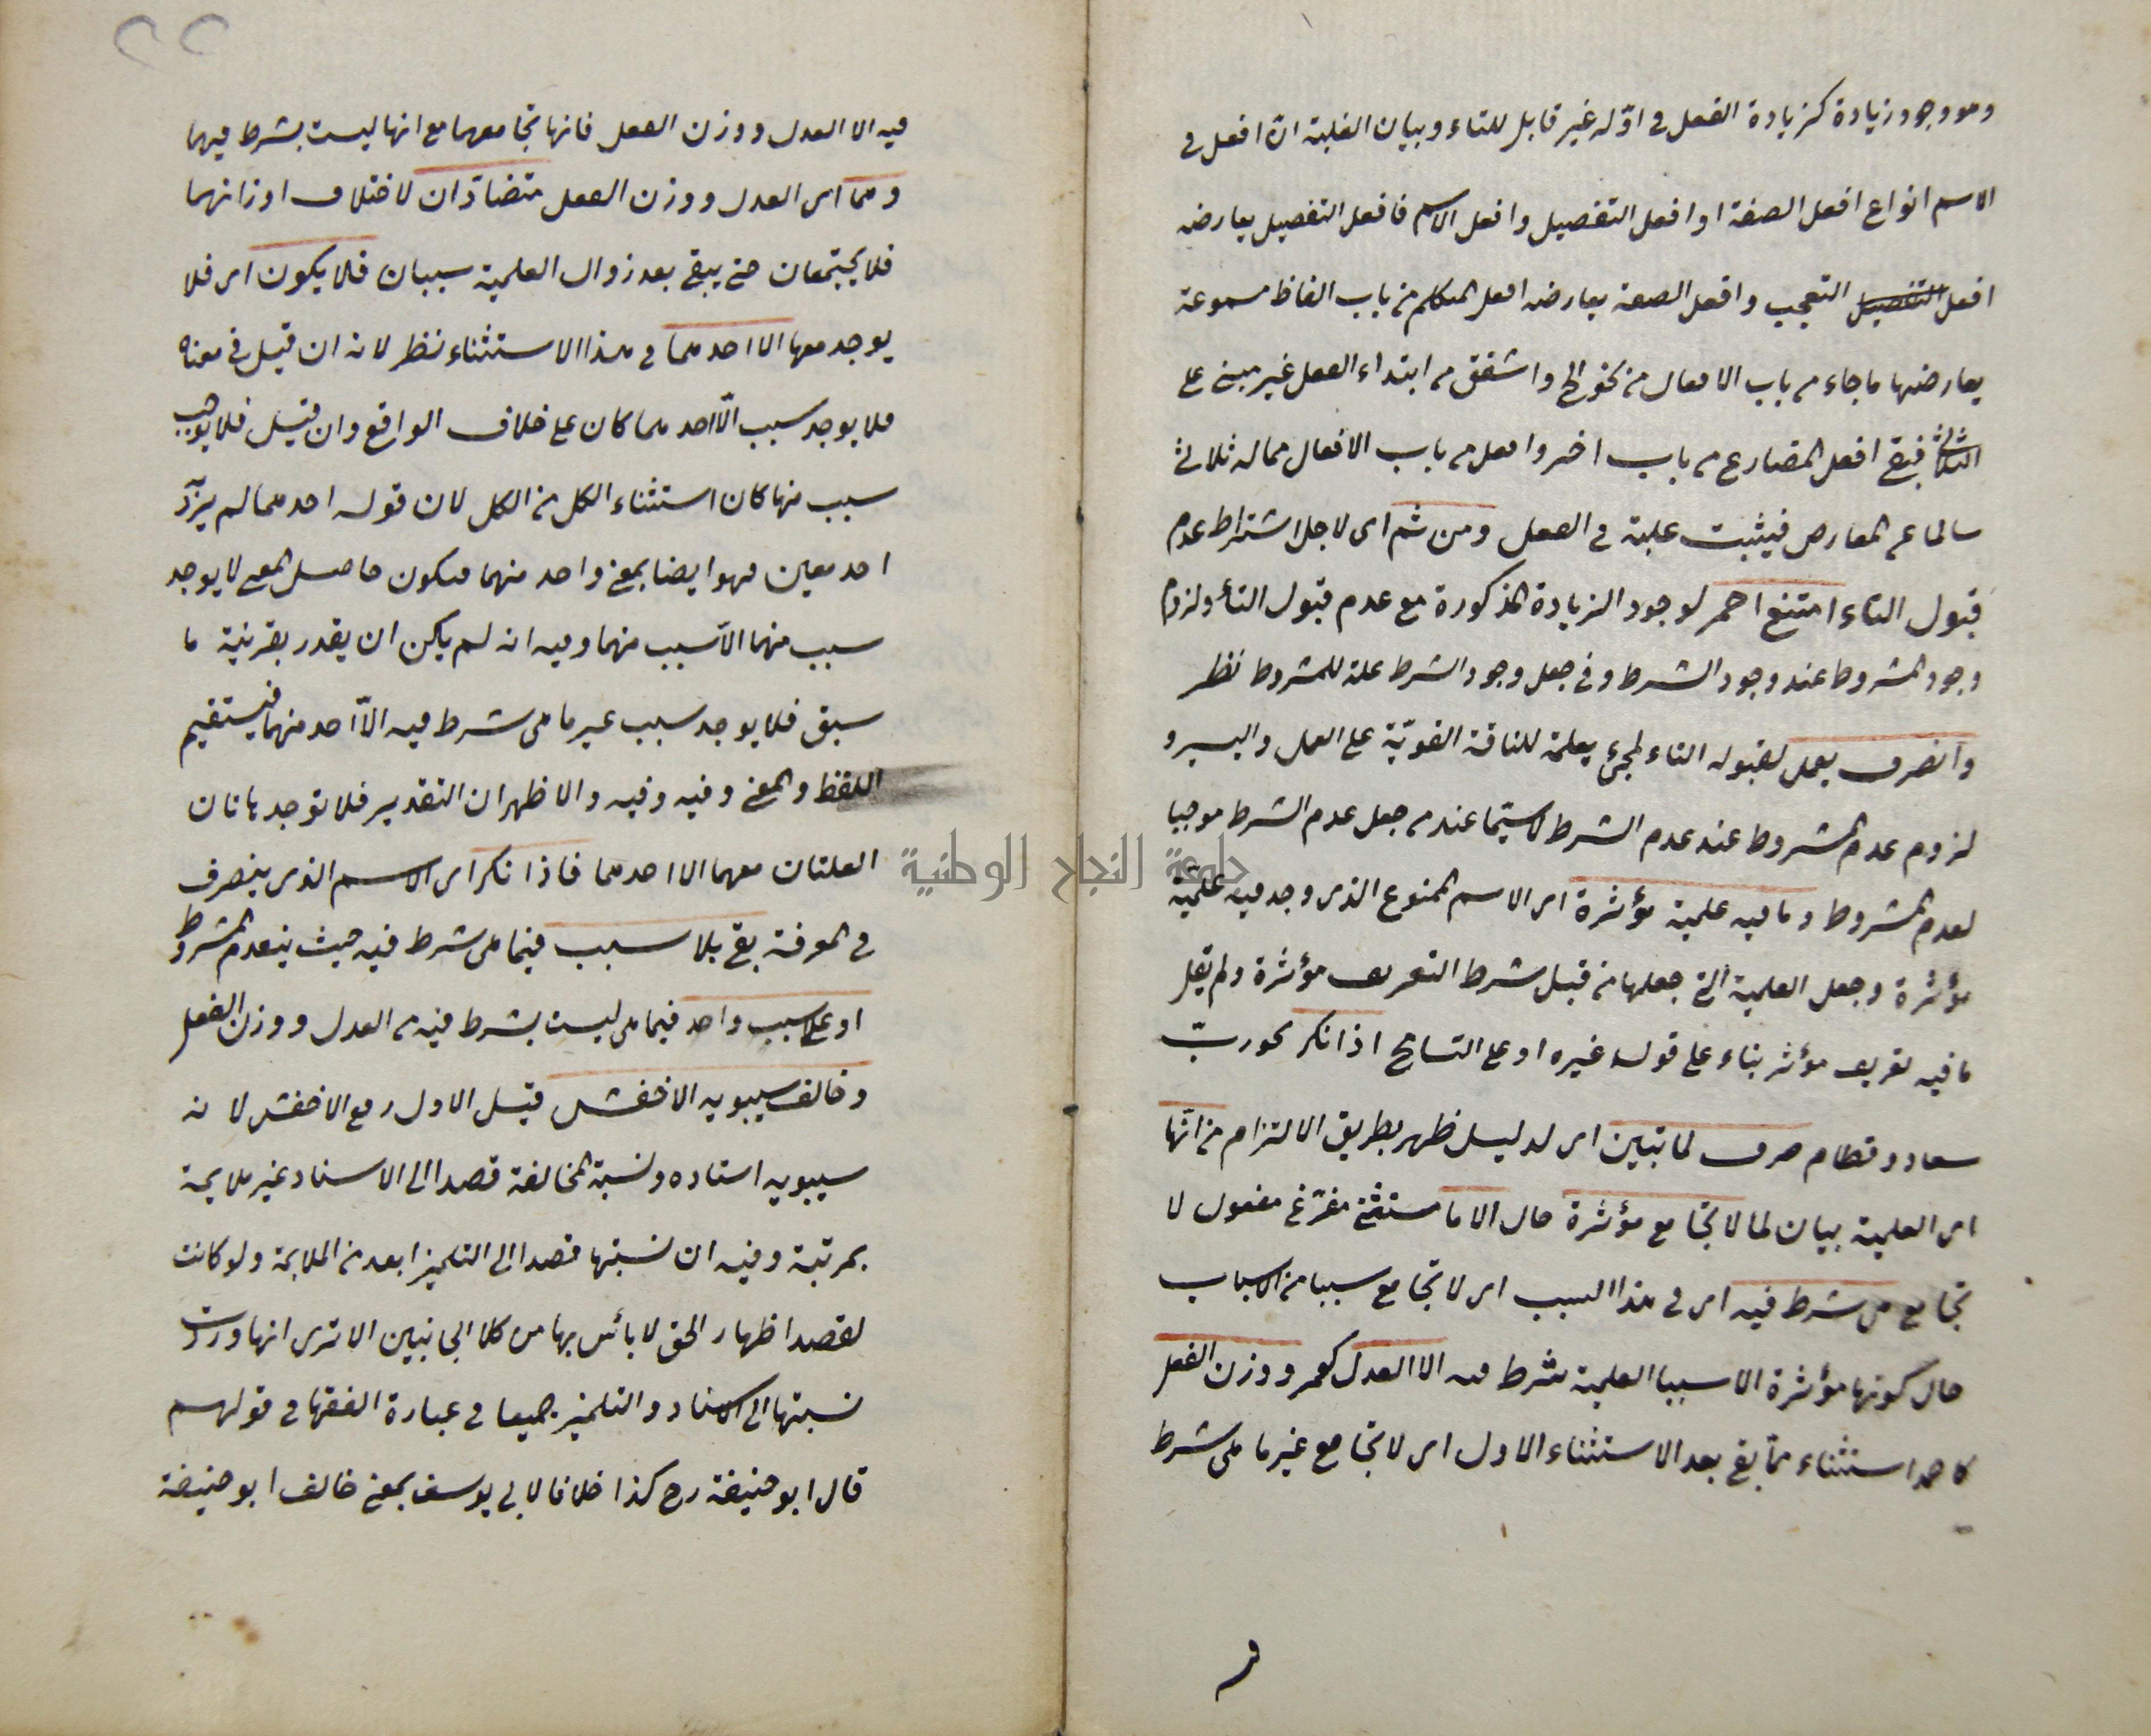 وهو وجود زيادة كزيادة الفعل في اوّله غير قابل للتاء وبيان الغلبة انّ افعل في
الاسم انواع افعل الصفة او افعل التفضيل وافعل الاسم فافعل التفضيل يعارضه
افعل التفضيل التعجب وافعل الصفة يعارضه افعل المتكلم من باب الفاظ مسموعة
يعارضها ما جاء من باب الافعال من نحو واشفق من ابتداء الفعل غير مبني على
الثلاثي فبقي افعل المضارع من باب اخر وافعل من باب الافعال مما له ثلاثي
سالما عن المعارض فيثبت غلبته في الفعل ومن ثم اى لاجل اشتراط عدم
قبول التاء امتنع احمر لوجود الزيادة المذكورة مع عدم قبول التاء ولزوم
وجود المشروط عند وجود الشرط وفي جعل وجود الشرط علة للمشروط نظر
وانصرف يعمل لقبوله التاء لمجئ يعلمة للناقة القويّة على العمل والسير و
لزوم عدم المشروط عند عدم الشرط لا سيّما عند من جعل عدم الشرط موجبا
لعدم المشروط وما فيه علمية مؤثرة اى الاسم الممنوع الذى وجد فيه علميّة
مؤثرة وجعل العلمية التي جعلها من قبل شرط التعريف مؤثرة ولم يقل
ما فيه تعريف مؤثر بناء على قوله غيره او على التسامح اذا نكر نحو ربّ
سعاد وقطام صرف لما تبين اى لدليل ظهر بطريق الالتزام من انّها
اى العلمية بيان لما لا تجامع مؤثرة حال الا ما مستثنى مفرّغ مفعول لا
تجامع هى شرط فيه اى في هذا السبب اى لا تجامع سببا من الاسباب
حال كونها مؤثرة الا سببا العلمية شرط فيه الا العدل كعمر ووزن الفعل
كاحمد استثناء ممّا بقي بعد الاستثناء الاول اى لا تجامع غير ما هى شرط
فيه الا العدل ووزن الفعل فانها تجامعهما مع انها ليست بشرط فيهما
وهما اى العدل ووزن الفعل متضادّان لاختلاف اوزانهما
فلا يجتمعان حتى يبقى بعد زوال العلمية سببان فلا يكون اى فلا
يوجد معها الا احدهما في هذا الاستثناء نظر لانه ان قيل في معناه
فلا يوجد سبب الّا احدهما كان على خلاف الواقع وان قيل فلا يوجد
سبب منها كان استثناء الكل من الكل لان قوله احدهما لم يزد
احد معين فهو ايضا بمعنى واحد منهما فيكون حاصل المعنى لا يوجد
سبب منهما الّا سبب منهما وفيه انه لم يكن ان يقدر بقرينة ما
سبق فلا يوجد سبب غير ما هى شرط فيه الّا احد منهما فيستقيم
اللفظ والمعنى وفيه وفيه والاظهر ان التقدير فلا توجد هاتان
العلتان معهما الا احدهما فاذا نكر اى الاسم الذى ينصرف
في المعرفة بقي بلا سبب فيما هى شرط فيه حيث ينعدم المشروط
او على سبب واحد فيما هى ليست بشرط فيه من العدل ووزن الفعل
وخالف سيبويه الاخفش قيل الاول رفع الاخفش لانه
سيبويه استاده ونسبة المخالفة قصدا الى الاستاد غير ملايمة
بمرتبة وفيه ان نسبتها قصدا الى التلميذ ابعد من الملايمة ولو كانت
لقصد اظهار الحق لا بأس بها من كلا الجانبين الا ترى انها وردت
نسبتها الى الاستاد والتلميذ جميعا في عبارة الفقها في قولهم
قال ابو حنيفة رح كذا خلافا لابي يوسف بمعنى خالف ابو حنيفة
جامعة النجاح الوطنية